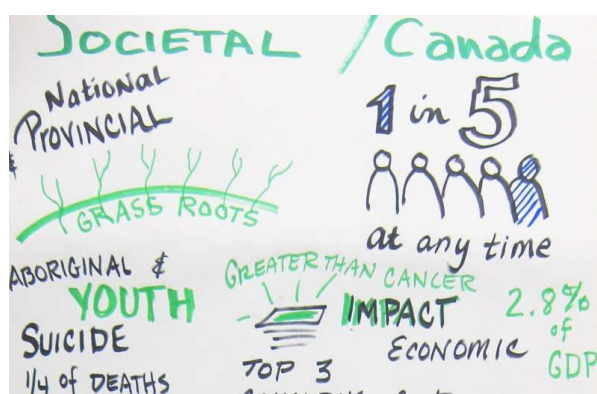 SOCIETAL / Canada
National
PROVINCIAL
&
GRASS ROOTS
1 in 5
at any time
ABORIGINAL &
YOUTH
SUICIDE
1/4 of DEATHS
GREATER THAN CANCER
IMPACT
ECONOMIC
2.8%
of
GDP
TOP 3